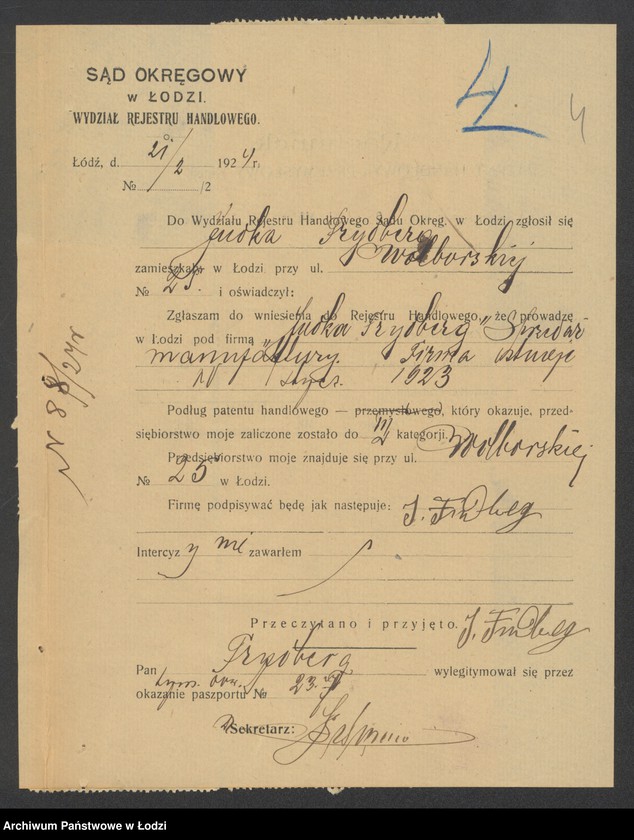 SĄD OKRĘGOWY
w ŁODZI.
WYDZIAŁ REJESTRU HANDLOWEGO.
4.
4
Łódź, d. 21/2 1924 r.
№ /2
Do Wydziału Rejestru Handlowego Sądu Okręg. w Łodzi zgłosił się
Judka Frydberg
zamieszkały w Łodzi przy ul. Wolborskiej
№ 25. i oświadczył:
Zgłaszam do wniesienia do Rejestru Handlowego, że prowadzę
w Łodzi pod firmą "Judka Frydberg" Sprzedaż
manufaktury. Firma istnieje
1923
Podług patentu handlowego — przemysłowego, który okazuje, przed-
siębiorstwo moje zaliczone zostało do kategorji.
Przedsiębiorstwo moje znajduje się przy ul. Wolborskiej
№ 25 w Łodzi.
Firmę podpisywać będę jak następuje: J. Fridberg
Intercyzy nie zawarłem
Przeczytano i przyjęto. J. Fridberg
Pan Frydberg wylegitymował się przez
okazanie paszportu №
Sekretarz:
Archiwum Państwowe w Łodzi